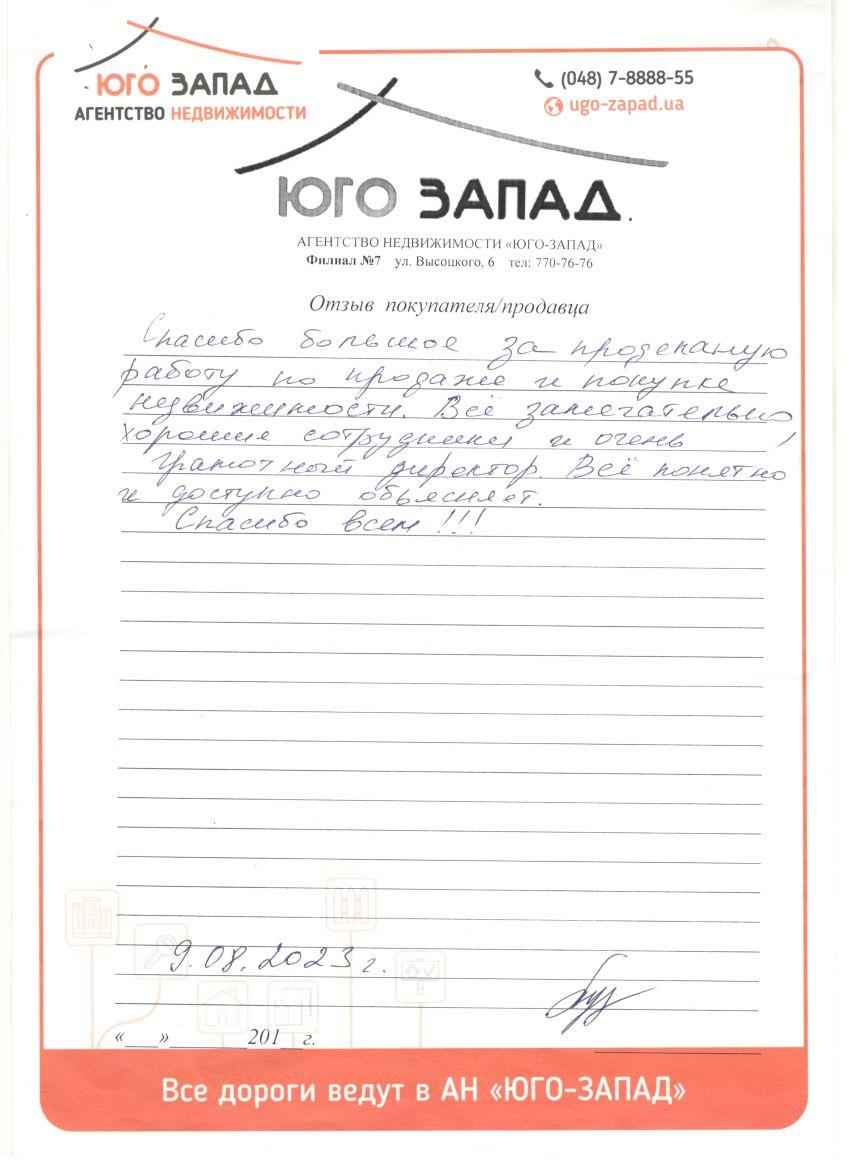 ЮГО ЗАПАД
АГЕНТСТВО НЕДВИЖИМОСТИ
(048) 7-8888-55
ugo-zapad.ua
ЮГО ЗАПАД.
АГЕНТСТВО НЕДВИЖИМОСТИ «ЮГО-ЗАПАД»
Филиал №7 ул. Высоцкого, 6 тел: 770-76-76
Отзыв покупателя/продавца
Спасибо большое за проделаную
работу по продаже и покупке
недвижимости. Всё замечательно,
хорошие сотрудники и очень
грамотный директор. Всё понятно
и доступно обьясняет.
Спасибо всем!!!
9.08.2023 г.
«___»________201__г.
Все дороги ведут в АН «ЮГО-ЗАПАД»